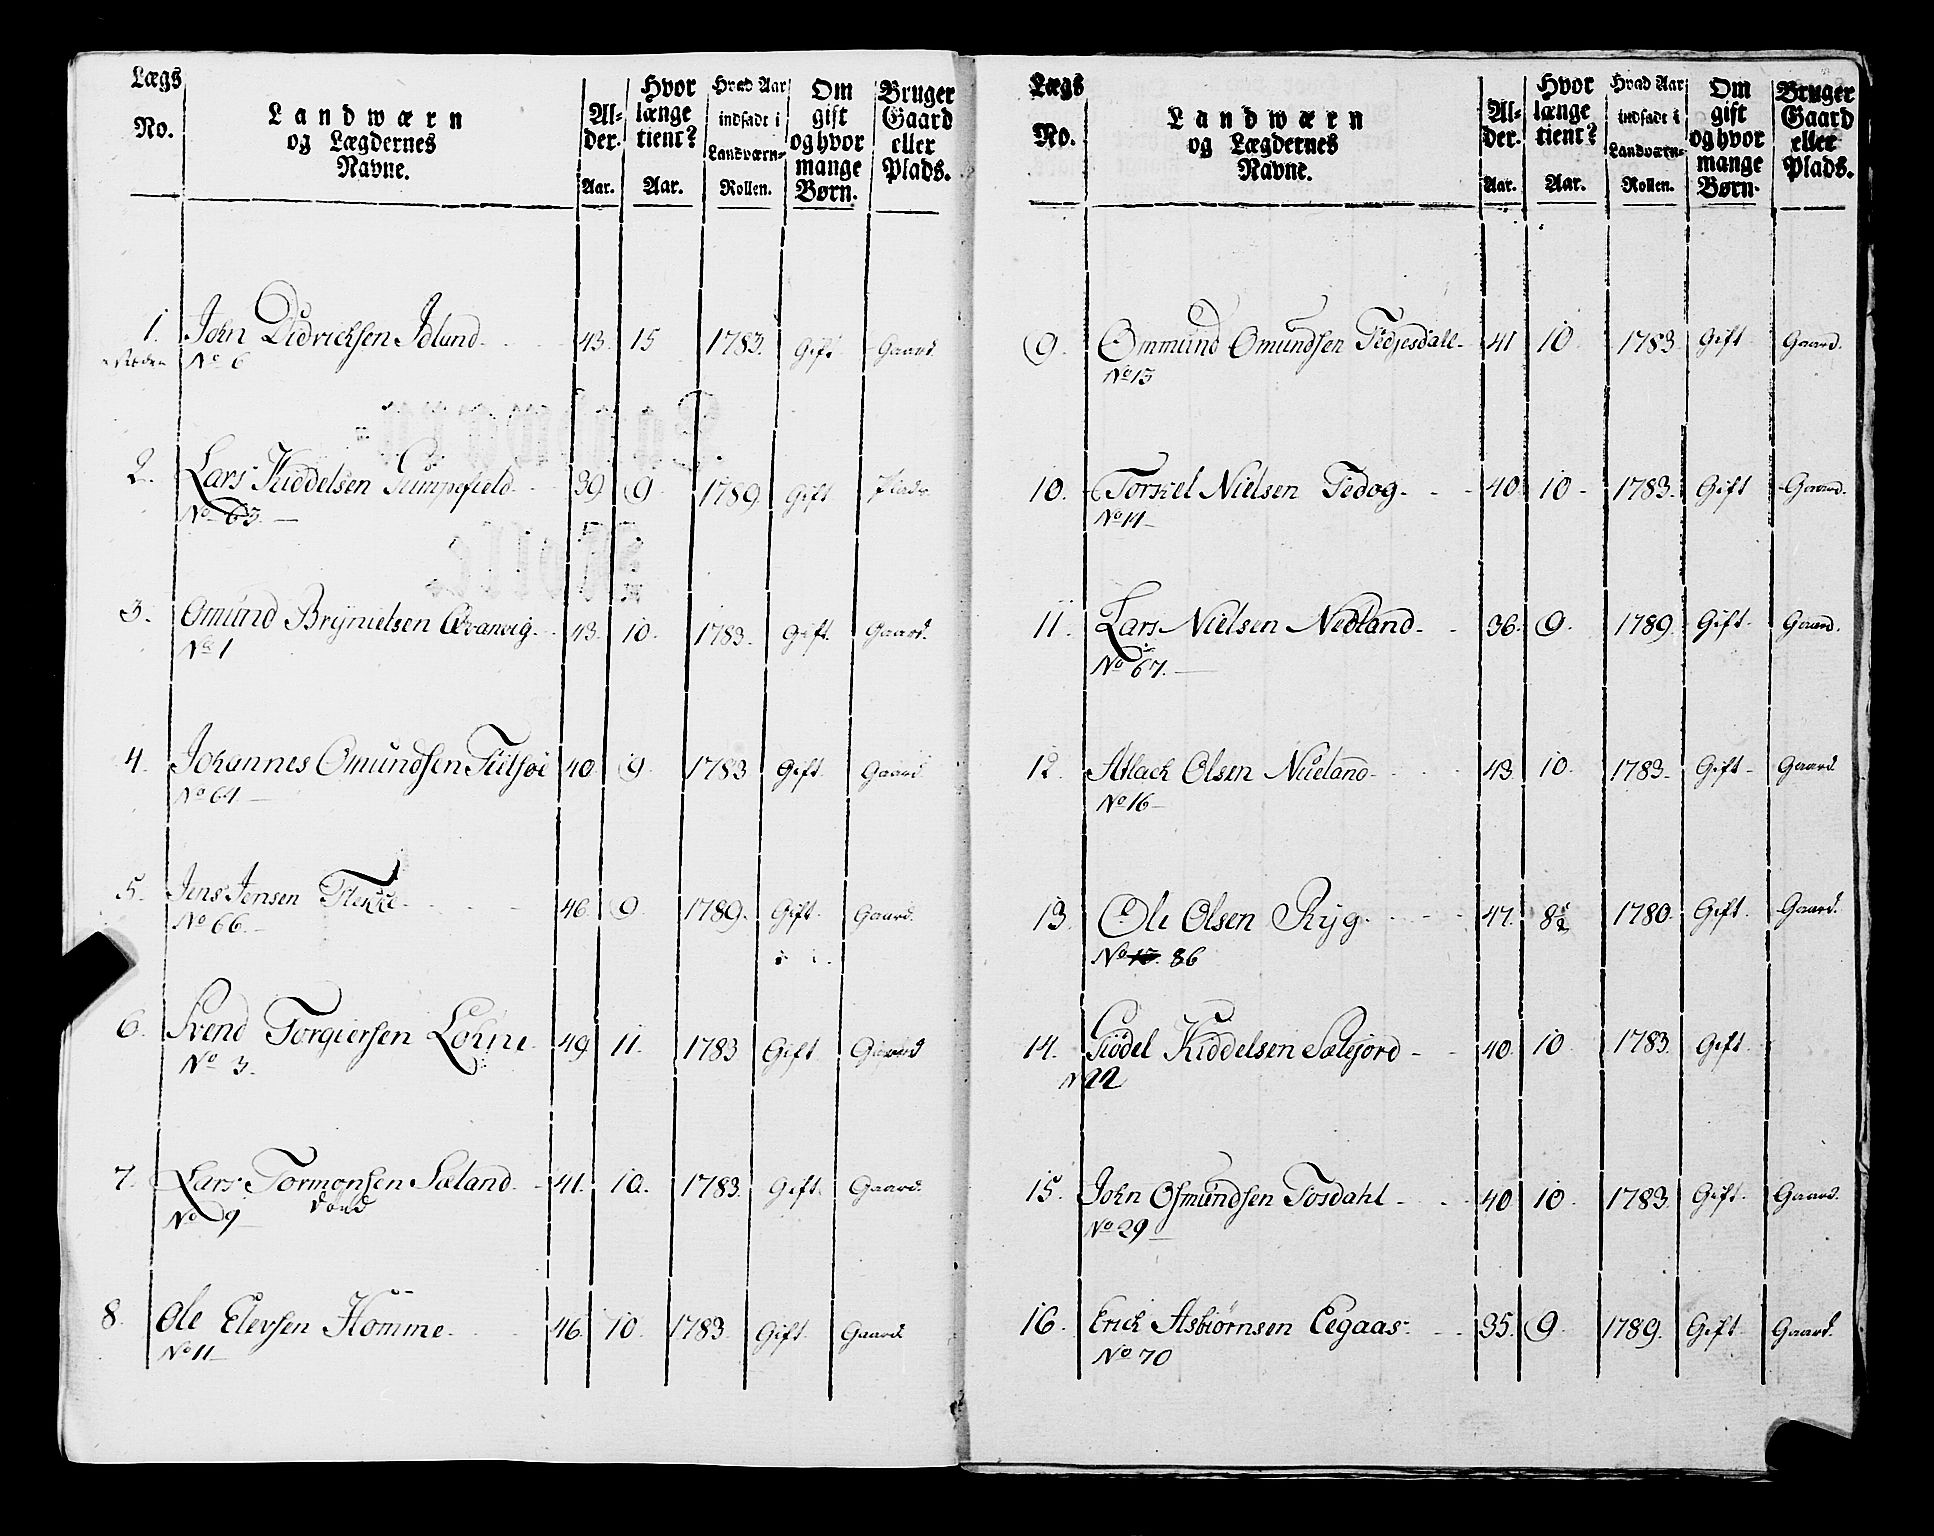 Lægs No. | Landwærn og Lægdernes Navne. | Alder. Aar. | Hvor længe tient? Aar. | Hvad Aar indsadt i Landværn-Rollen. | Om gift og hvor mange Børn. | Bruger Gaard eller Plads.
1. John Didrichsen Idland. 43. 15 1783. Gift Gaard.
No 6
2. Lars Kiddelsen 39 9 1789. Gift Plads.
No 63.
3. Omund Brynielsen 43. 10. 1783. Gift. Gaard.
No 1
4. Johannes Omundsen 40 9. 1783 Gift. Gaard.
No 64
5. Jens Jensen 46. 9. 1789. Gift. Gaard.
No 66.
6. Svend Torgiersen Lohne. 49 11. 1783 Gift Gaard
No 3.
7. Lars Tormonsen Sæland. 41. 10. 1783. Gift. Gaard.
No 9 død
8. Ole Elevsen Homme. 46. 10. 1783. Gift. Gaard.
No 11
Lægs No. | Landwærn og Lægdernes Navne. | Alder. Aar. | Hvor længe tient? Aar. | Hvad Aar indsadt i Landværn-Rollen. | Om gift og hvor mange Børn. | Bruger Gaard eller Plads.
9. Ommund Omundsen 41 10. 1783 Gift Gaard.
No 13
10. Torkel Nielsen Tedog. 40 10 1783. Gift Gaard.
No 14
11. Lars Nielsen Nedland. 36. 9. 1789. Gift. Gaard.
No 67.
12. Aslach Olsen Nueland 43 10. 1783. Gift Gaard.
No 16
13. Ole Olsen Ryg. 47. 8½ 1780. Gift. Gaard.
No 86
14. Kiddelsen Salejord 40. 10 1783. Gift.
N 22
15. John Osmundsen Tosdahl 40 10 1783. Gift. Gaard.
No 29
16. Erich Asbiørnsen Eegaas. 35. 9. 1789. Gift Gaard.
No 70